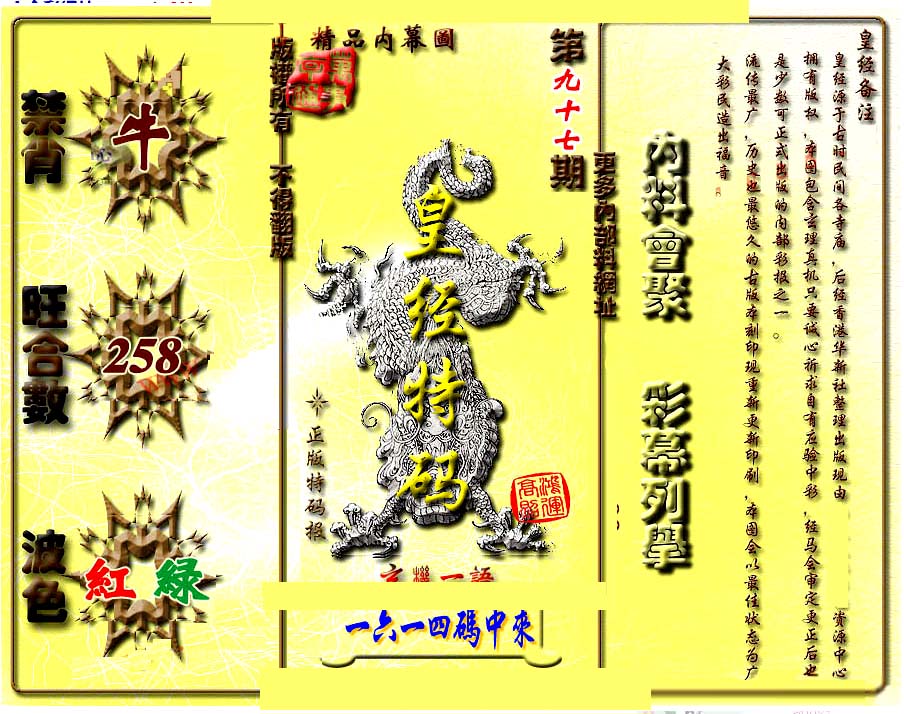 精品內幕圖
第九十七期
版權所有 不得翻版
更多內部料網址
禁肖
牛
旺合數
258
波色
紅 綠
皇经特码
正版特码报
鴻運高照
玄機一語
一六一四碼中來
內料會聚 彩幕列舉
皇经备注
皇经源于古时民间各寺庙，后经香港华新社整理出版现由 资源中心
拥有版权，本图包含玄理真机只要诚心祈求自有应验中彩，经马会审定更正后也
是少数可正式出版的内部彩报之一。
流传最广，历史也最悠久的古版本刻印现重新更新印刷，本图会以最佳状态为广
大彩民造出福音。